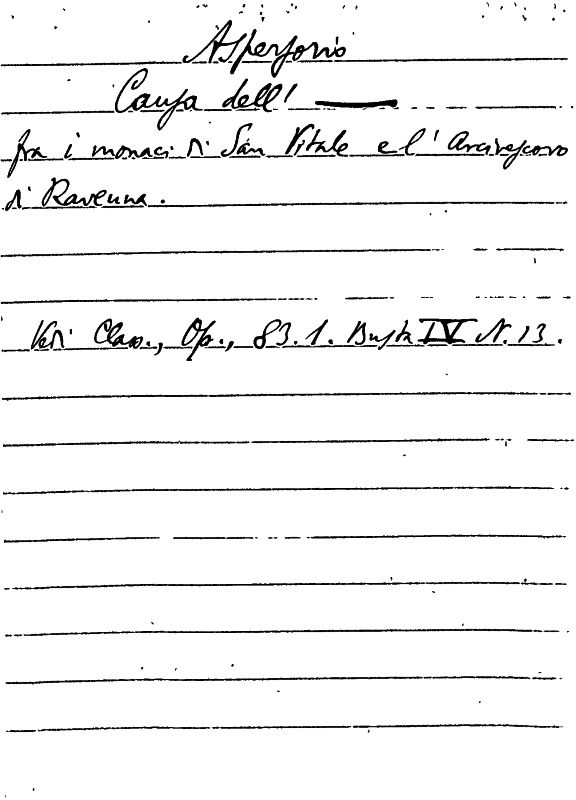 Aspersorio
Causa dell' ———
fra i monaci di San Vitale e l'Arcivescovo
di Ravenna.
Vedi Class., Op., 83.1. Busta IV N. 13.